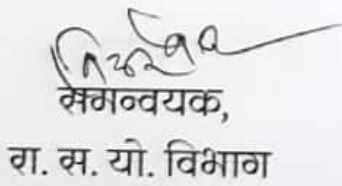 समन्वयक,
रा. स. यो. विभाग